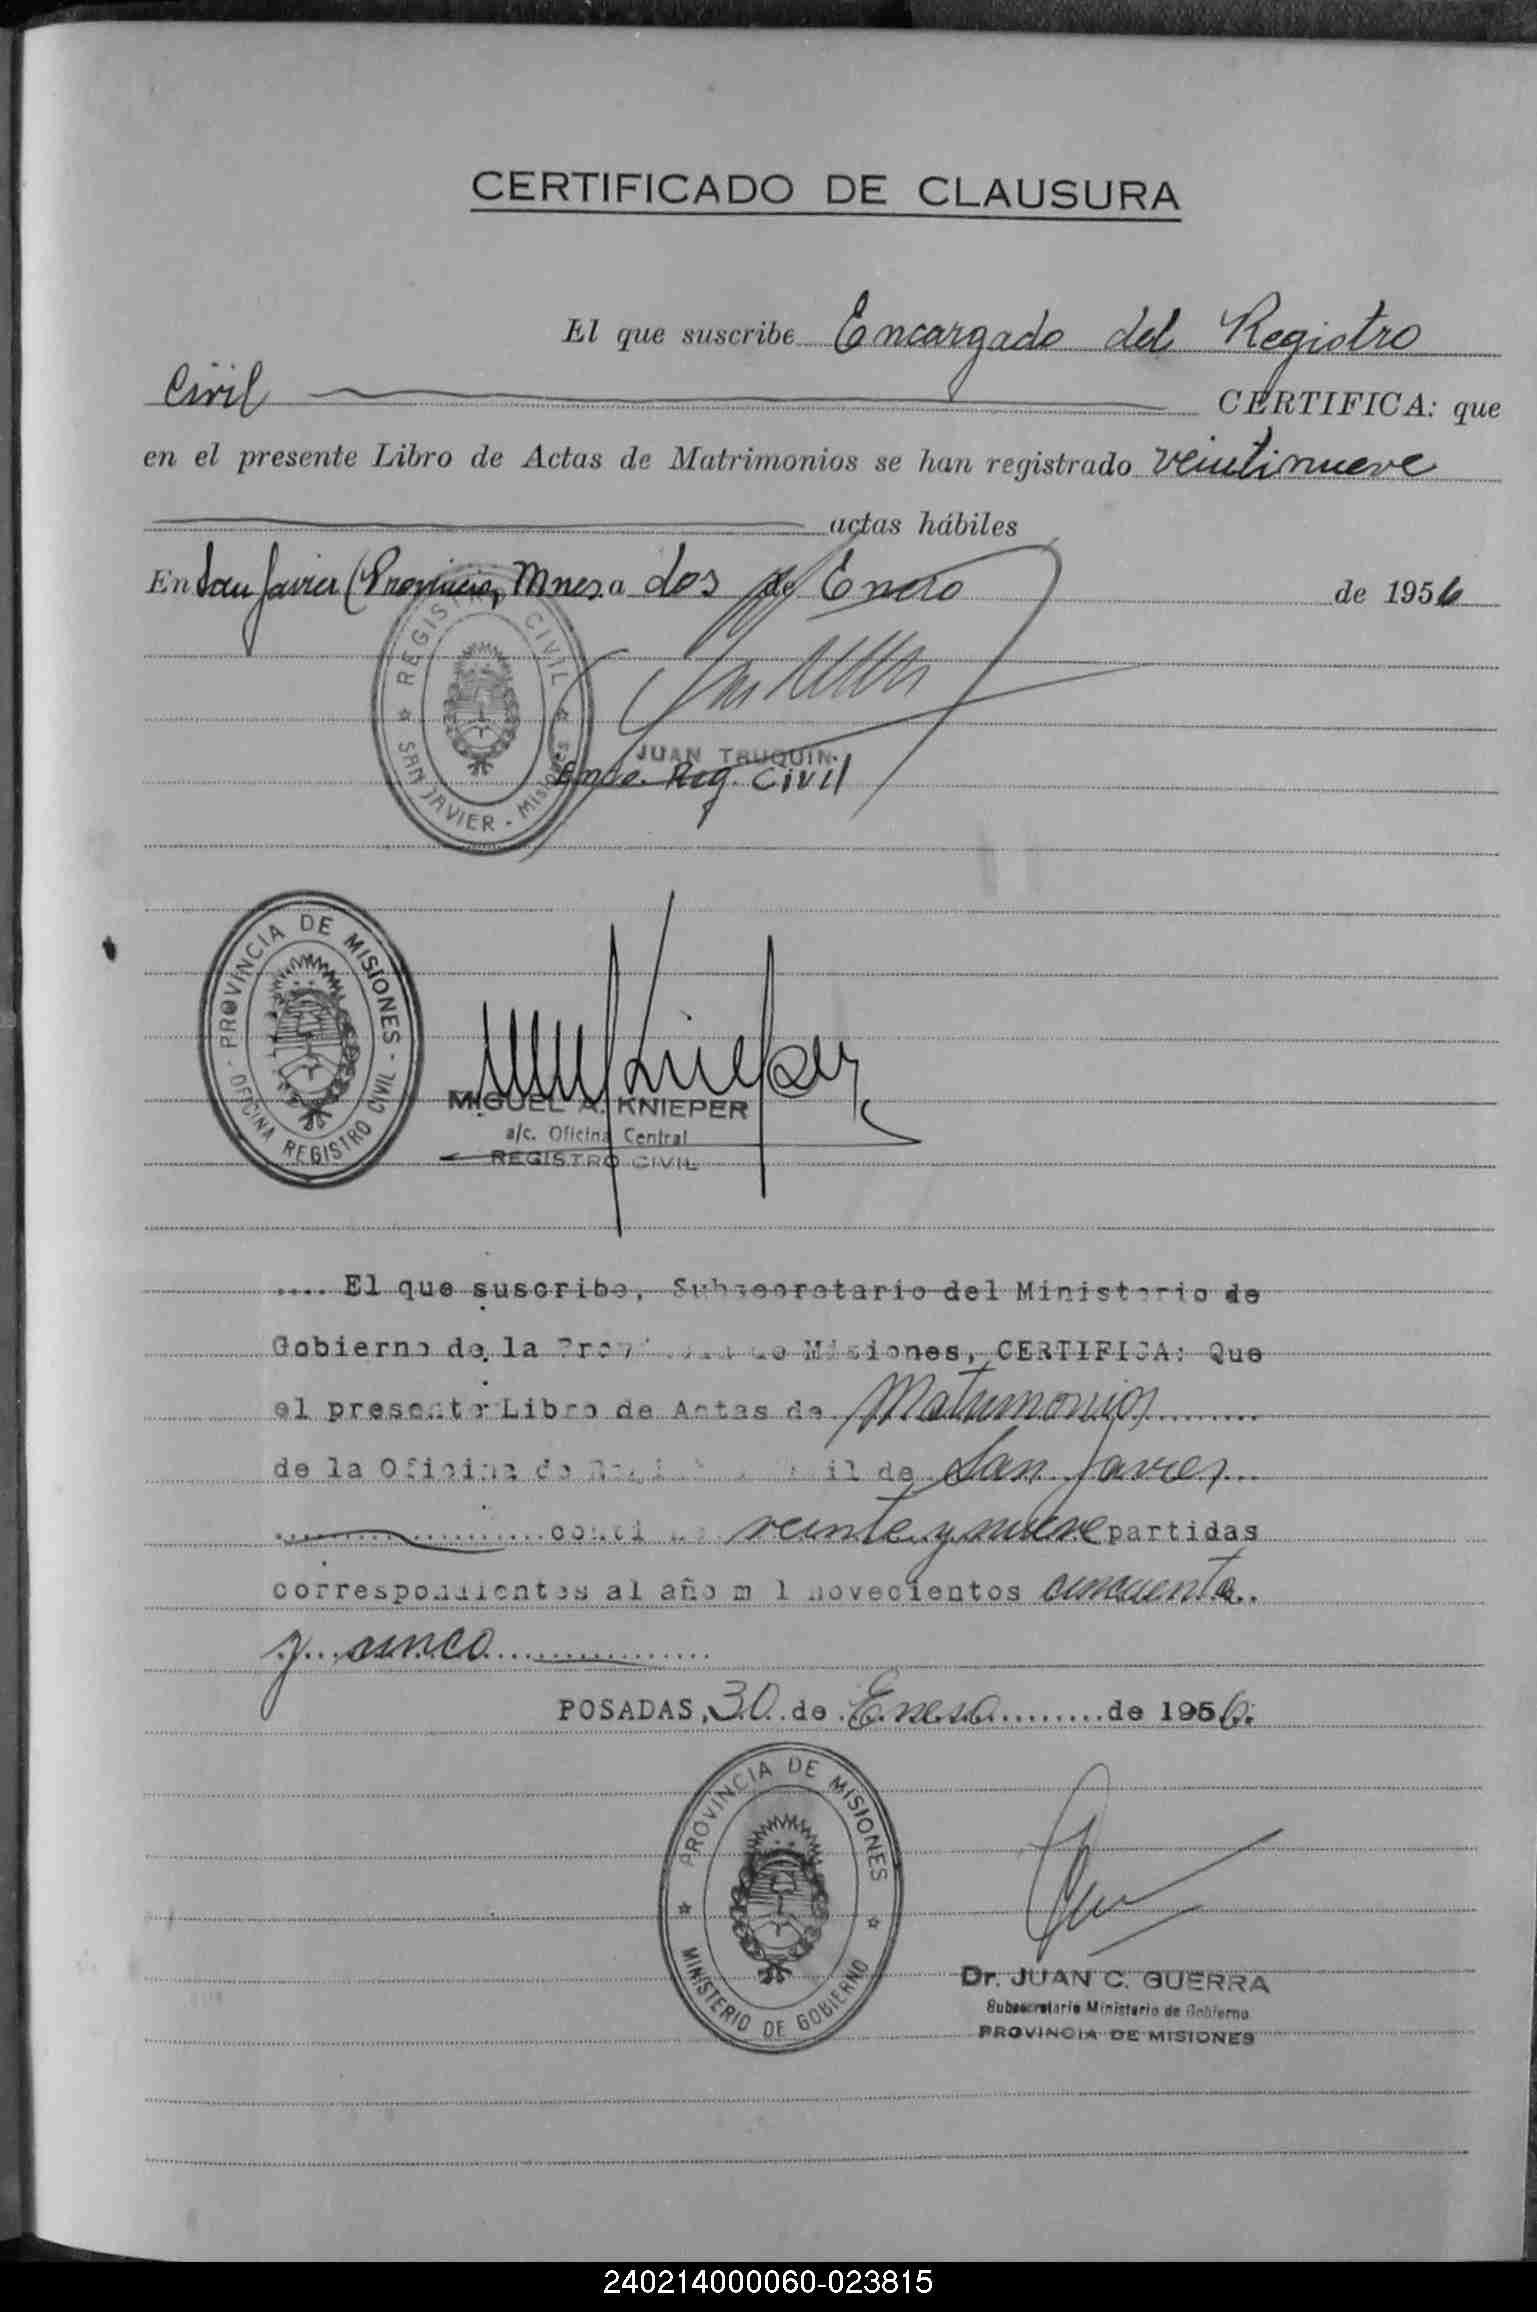 CERTIFICADO DE CLAUSURA
El que suscribe Encargado del Registro
Civil CERTIFICA: que
en el presente Libro de Actas de Matrimonios se han registrado veintinueve
actas hábiles
En San Javier (Provincia Mnes a dos de Enero de 1956
REGISTRO CIVIL
SAN JAVIER - MISIONES
JUAN TRUQUIN
Encdo. Reg. Civil
PROVINCIA DE MISIONES
OFICINA REGISTRO CIVIL
Knieper
MIGUEL A. KNIEPER
a/c. Oficina Central
REGISTRO CIVIL
.... El que suscribe, Subsecretario del Ministerio de
Gobierno de la Provincia de Misiones, CERTIFICA: Que
el presente Libro de Actas de Matrimonios
de la Oficina de Registro Civil de San Javier
contiene veinte y nueve partidas
correspondientes al año mil novecientos cincuenta
y cinco
POSADAS, 30 de Enero de 1956.
PROVINCIA DE MISIONES
MINISTERIO DE GOBIERNO
Dr. JUAN C. GUERRA
Subsecretario Ministerio de Gobierno
PROVINCIA DE MISIONES
240214000060-023815